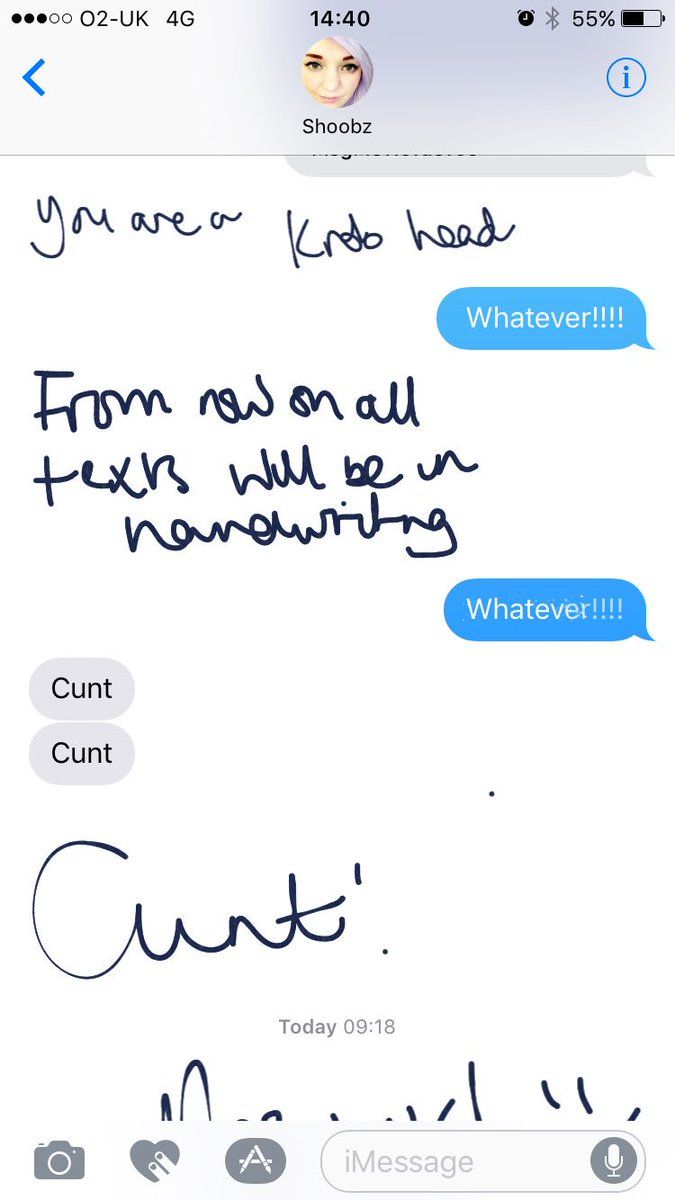 O2-UK 4G 14:40 55%
Shoobz
you are a knob head
Whatever!!!!
From now on all
texts will be in
handwriting
Whatever!!!!
Cunt
Cunt
Cunt!
Today 09:18
iMessage